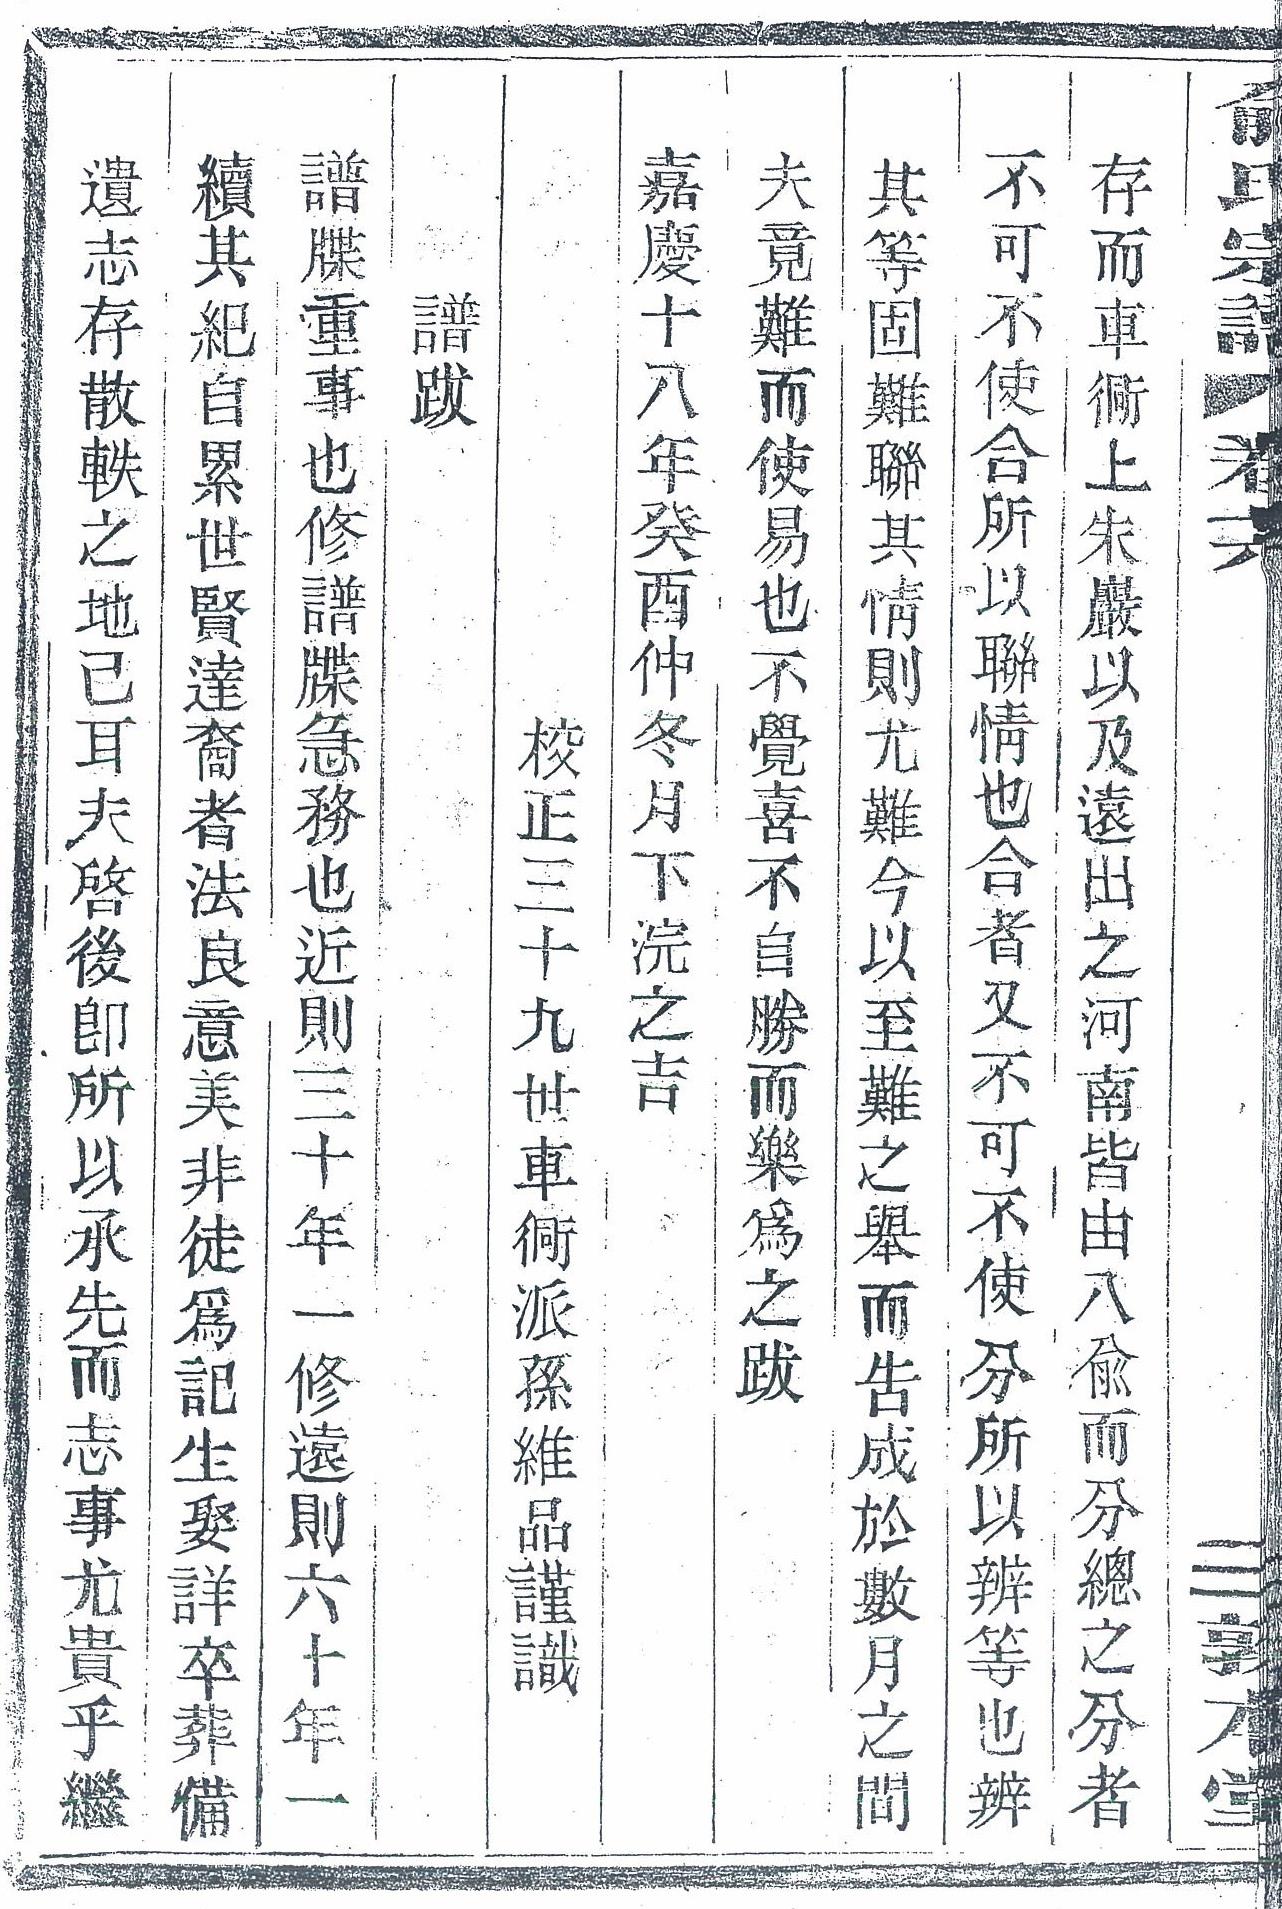 俞氏宗譜 卷六 三 敦本堂
存而車衕上朱嚴以及遠出之河南皆由八俞而分總之分者
不可不使合所以聯情也合者又不可不使分所以辨等也辨
其等固難聯其情則尤難今以至難之舉而告成於數月之間
夫竟難而使易也不覺喜不自勝而樂爲之跋
嘉慶十八年癸酉仲冬月下浣之吉
校正三十九世車衕派孫維品謹識
譜跋
譜牒重事也修譜牒急務也近則三十年一修遠則六十年一
續其紀自累世賢達裔者法良意美非徒爲記生娶詳卒葬備
遺志存散軼之地已耳夫啓後卽所以承先而志事尤貴乎繼